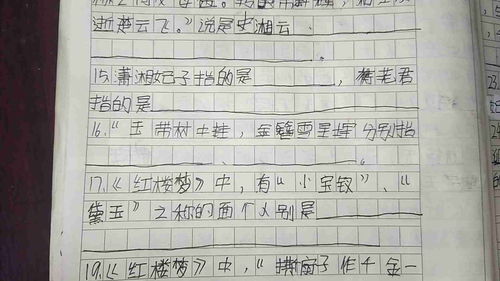 逝楚云飞。”说是史湘云
15.潇湘妃子指的是，蘅芜君
指的是
16.“玉带林中挂，金簪雪里埋”分别指
、。
17.《红楼梦》中，有“小宝钗”、“
黛玉”之称的两个人别是
19.《红楼梦》中，“撕扇子作千金一